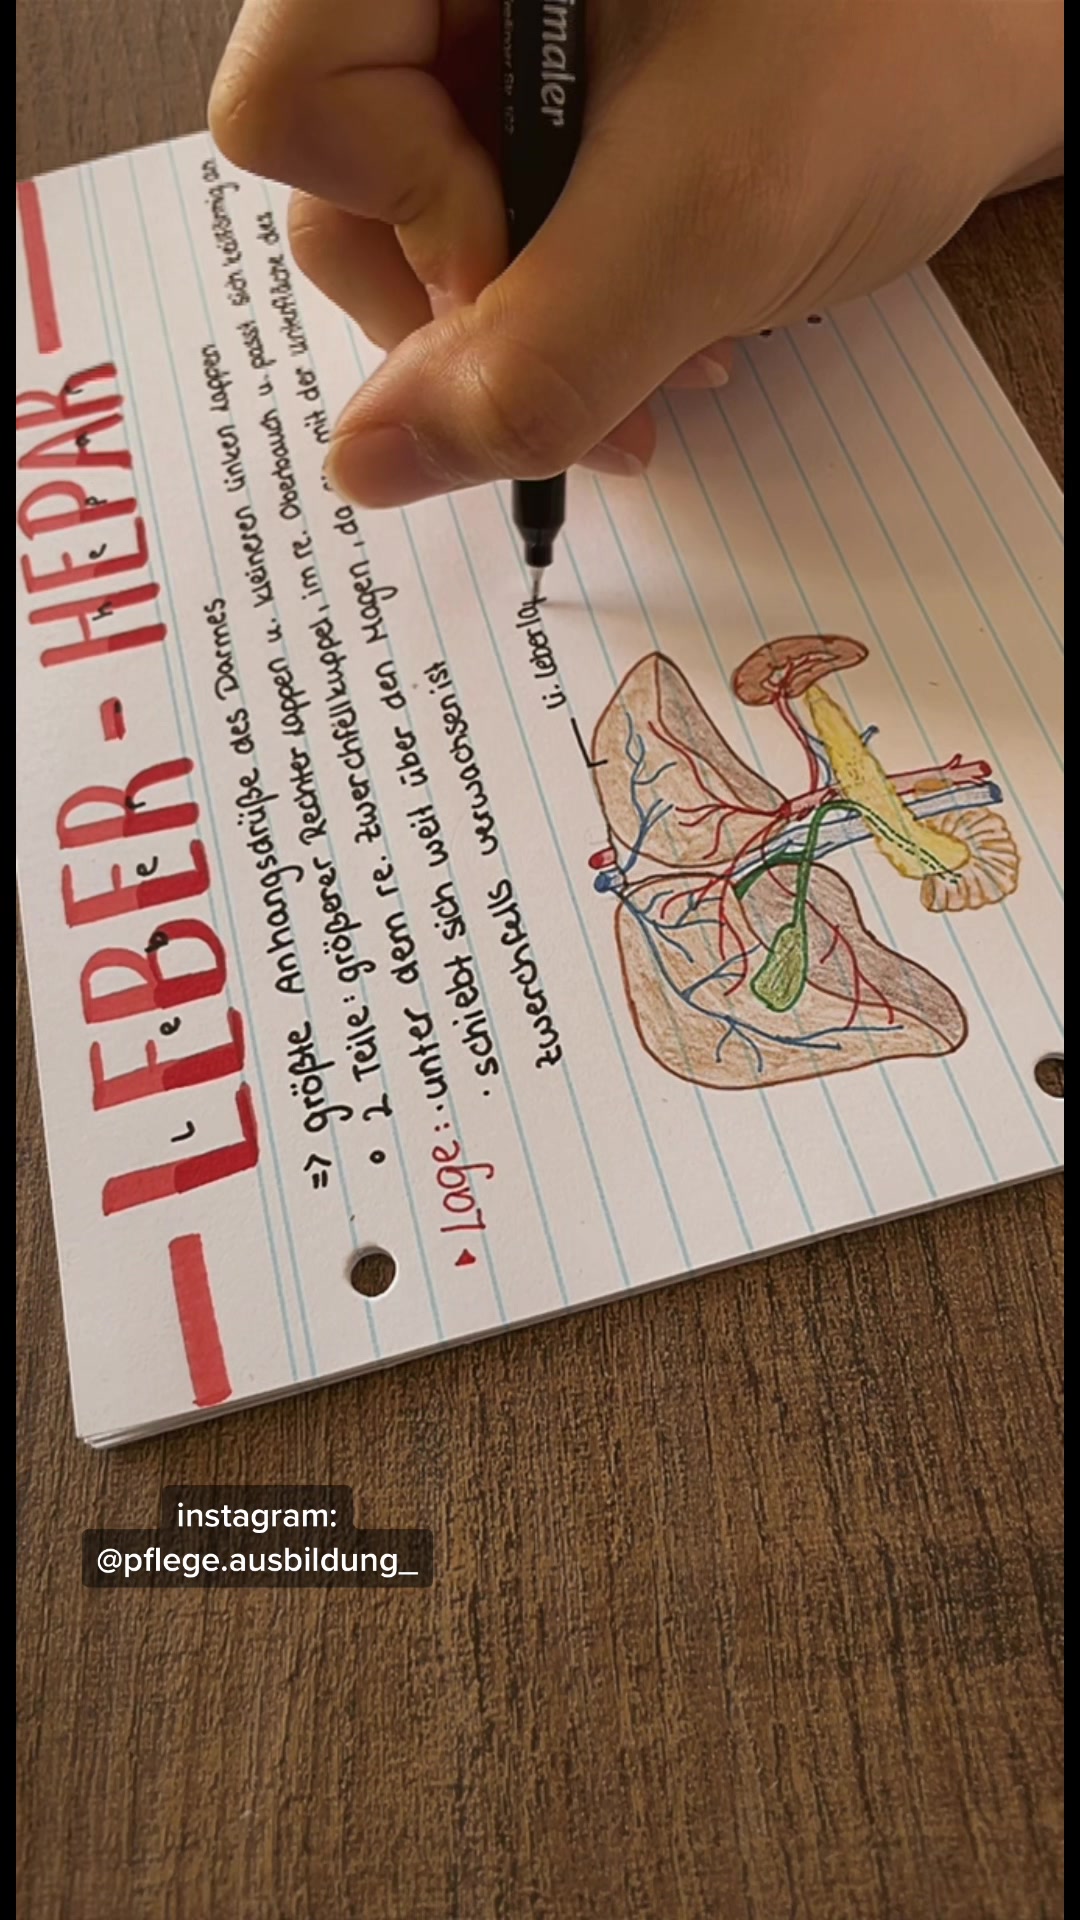 LEBER - HEPAR
L e b e r h e p a r
=> größte Anhangsdrüße des Darmes
o 2 Teile: größerer Rechter Lappen u. kleineren linken Lappen
▸ Lage: . unter dem re. Zwerchfellkuppel, im re. Oberbauch u. passt sich keilförmig an
. schiebt sich weit über den Magen, da mit der unterfläche des
Zwerchfells verwachsen ist
li. Leberla
imaler
instagram:
@pflege.ausbildung_